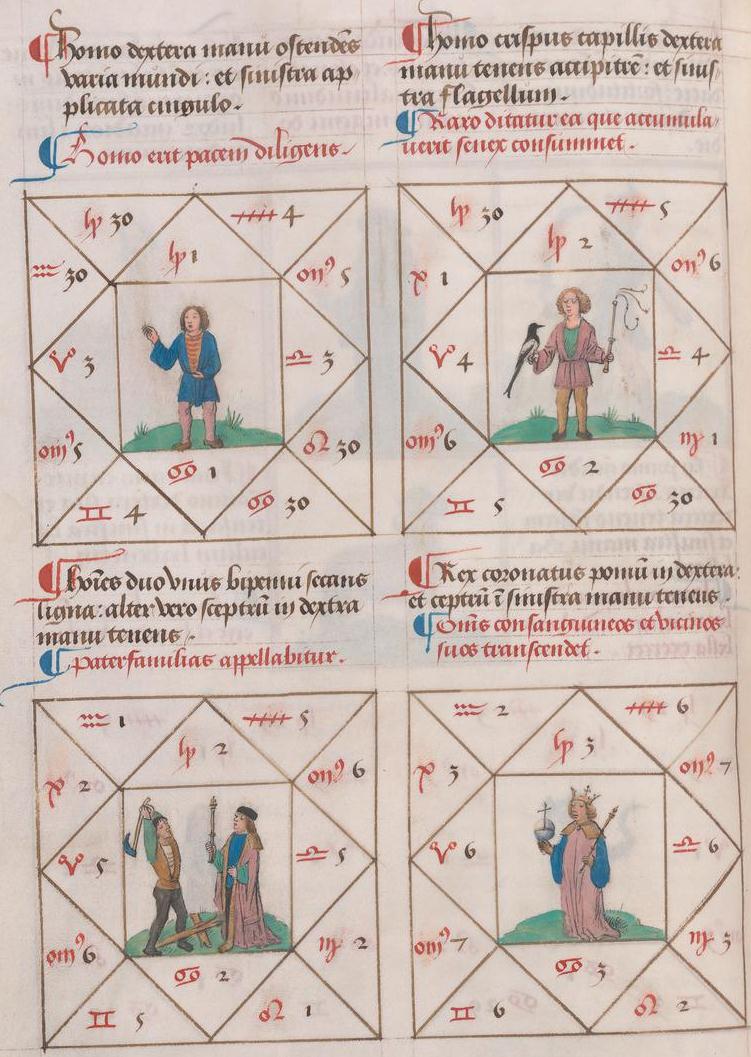 Homo dextera manu ostendēs
varia mundi: et sinistra ap
plicata cingulo.
Homo erit pacem diligens.
30
4
1
30
5
3
3
5
30
1
4
30
Homo crispus capillis dextera
manu tenens accipitrē: et sinis
tra flagellum.
Raro ditatur ea que accumula
uerit senex consummet.
30
5
2
1
6
4
4
6
1
2
5
30
hoīes duo vnus bipenni secans
ligna: alter vero sceptrū in dextra
manu tenens
Paterfamilias appellabitur.
♒ 1
5
2
2
6
♈ 5
♎ 5
6
2
♋ 2
♊ 5
♌ 1
Rex coronatus pomū in dextera:
et ceptrū ī sinistra manu tenens.
Om̄s consanguineos et vicinos
suos transcendet.
♒ 2
6
3
3
7
♈ 6
♎ 6
7
3
♋ 3
♊ 6
♌ 2